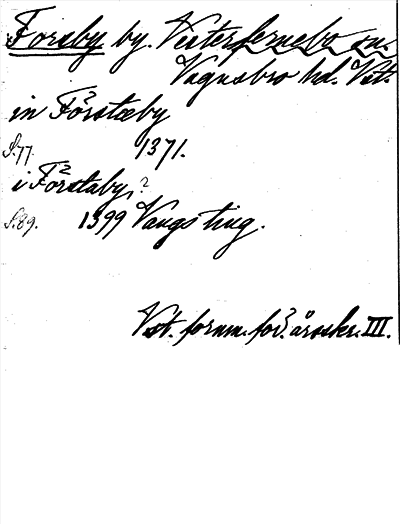 Forsby by. Vesterfernebo sn.
Vagnsbro hd. Vst.
in Förstæby
S. 77. 1371.
i Förstaby,?
S. 89. 1399 Vangsting.
Vst. fornm. för. årsskr. III.